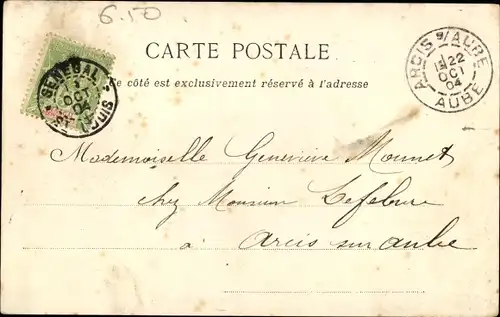 6.50
CARTE POSTALE
Ce côté est exclusivement réservé à l'adresse
SENEGAL
OCT
04
ST LOUIS
ARCIS S/ AUBE
22
OCT
04
AUBE
Mademoiselle Geneviève Monnet
chez Monsieur Lefebure
à Arcis sur aube